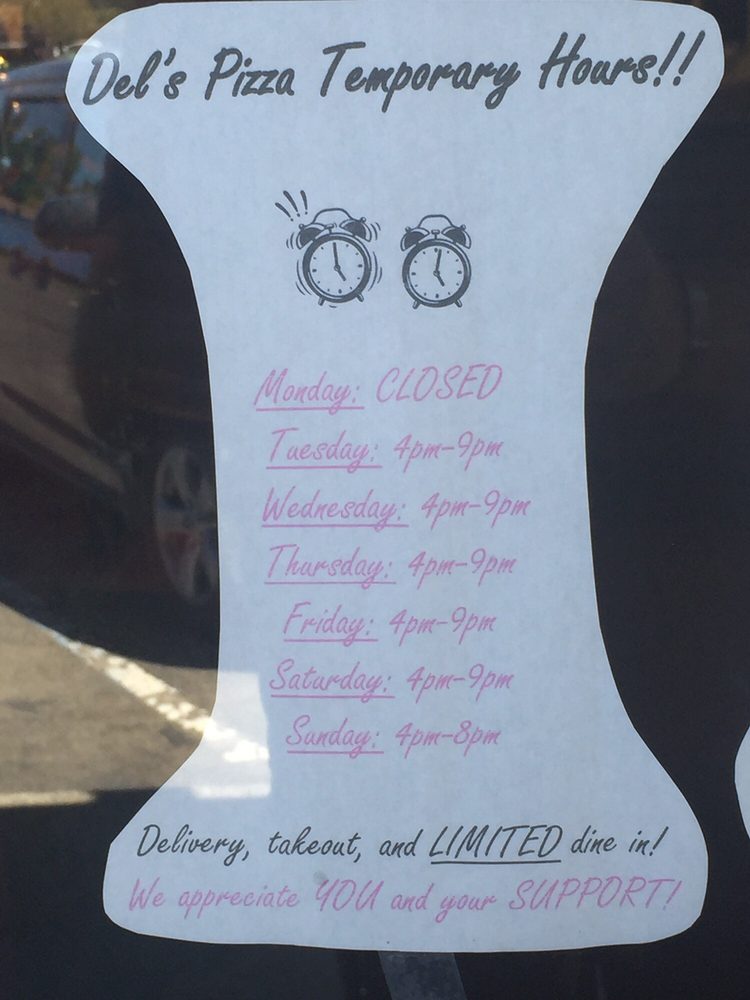 Del's Pizza Temporary Hours!!
Monday: CLOSED
Tuesday: 4pm-9pm
Wednesday: 4pm-9pm
Thursday: 4pm-9pm
Friday: 4pm-9pm
Saturday: 4pm-9pm
Sunday: 4pm-8pm
Delivery, takeout, and LIMITED dine in!
We appreciate YOU and your SUPPORT!